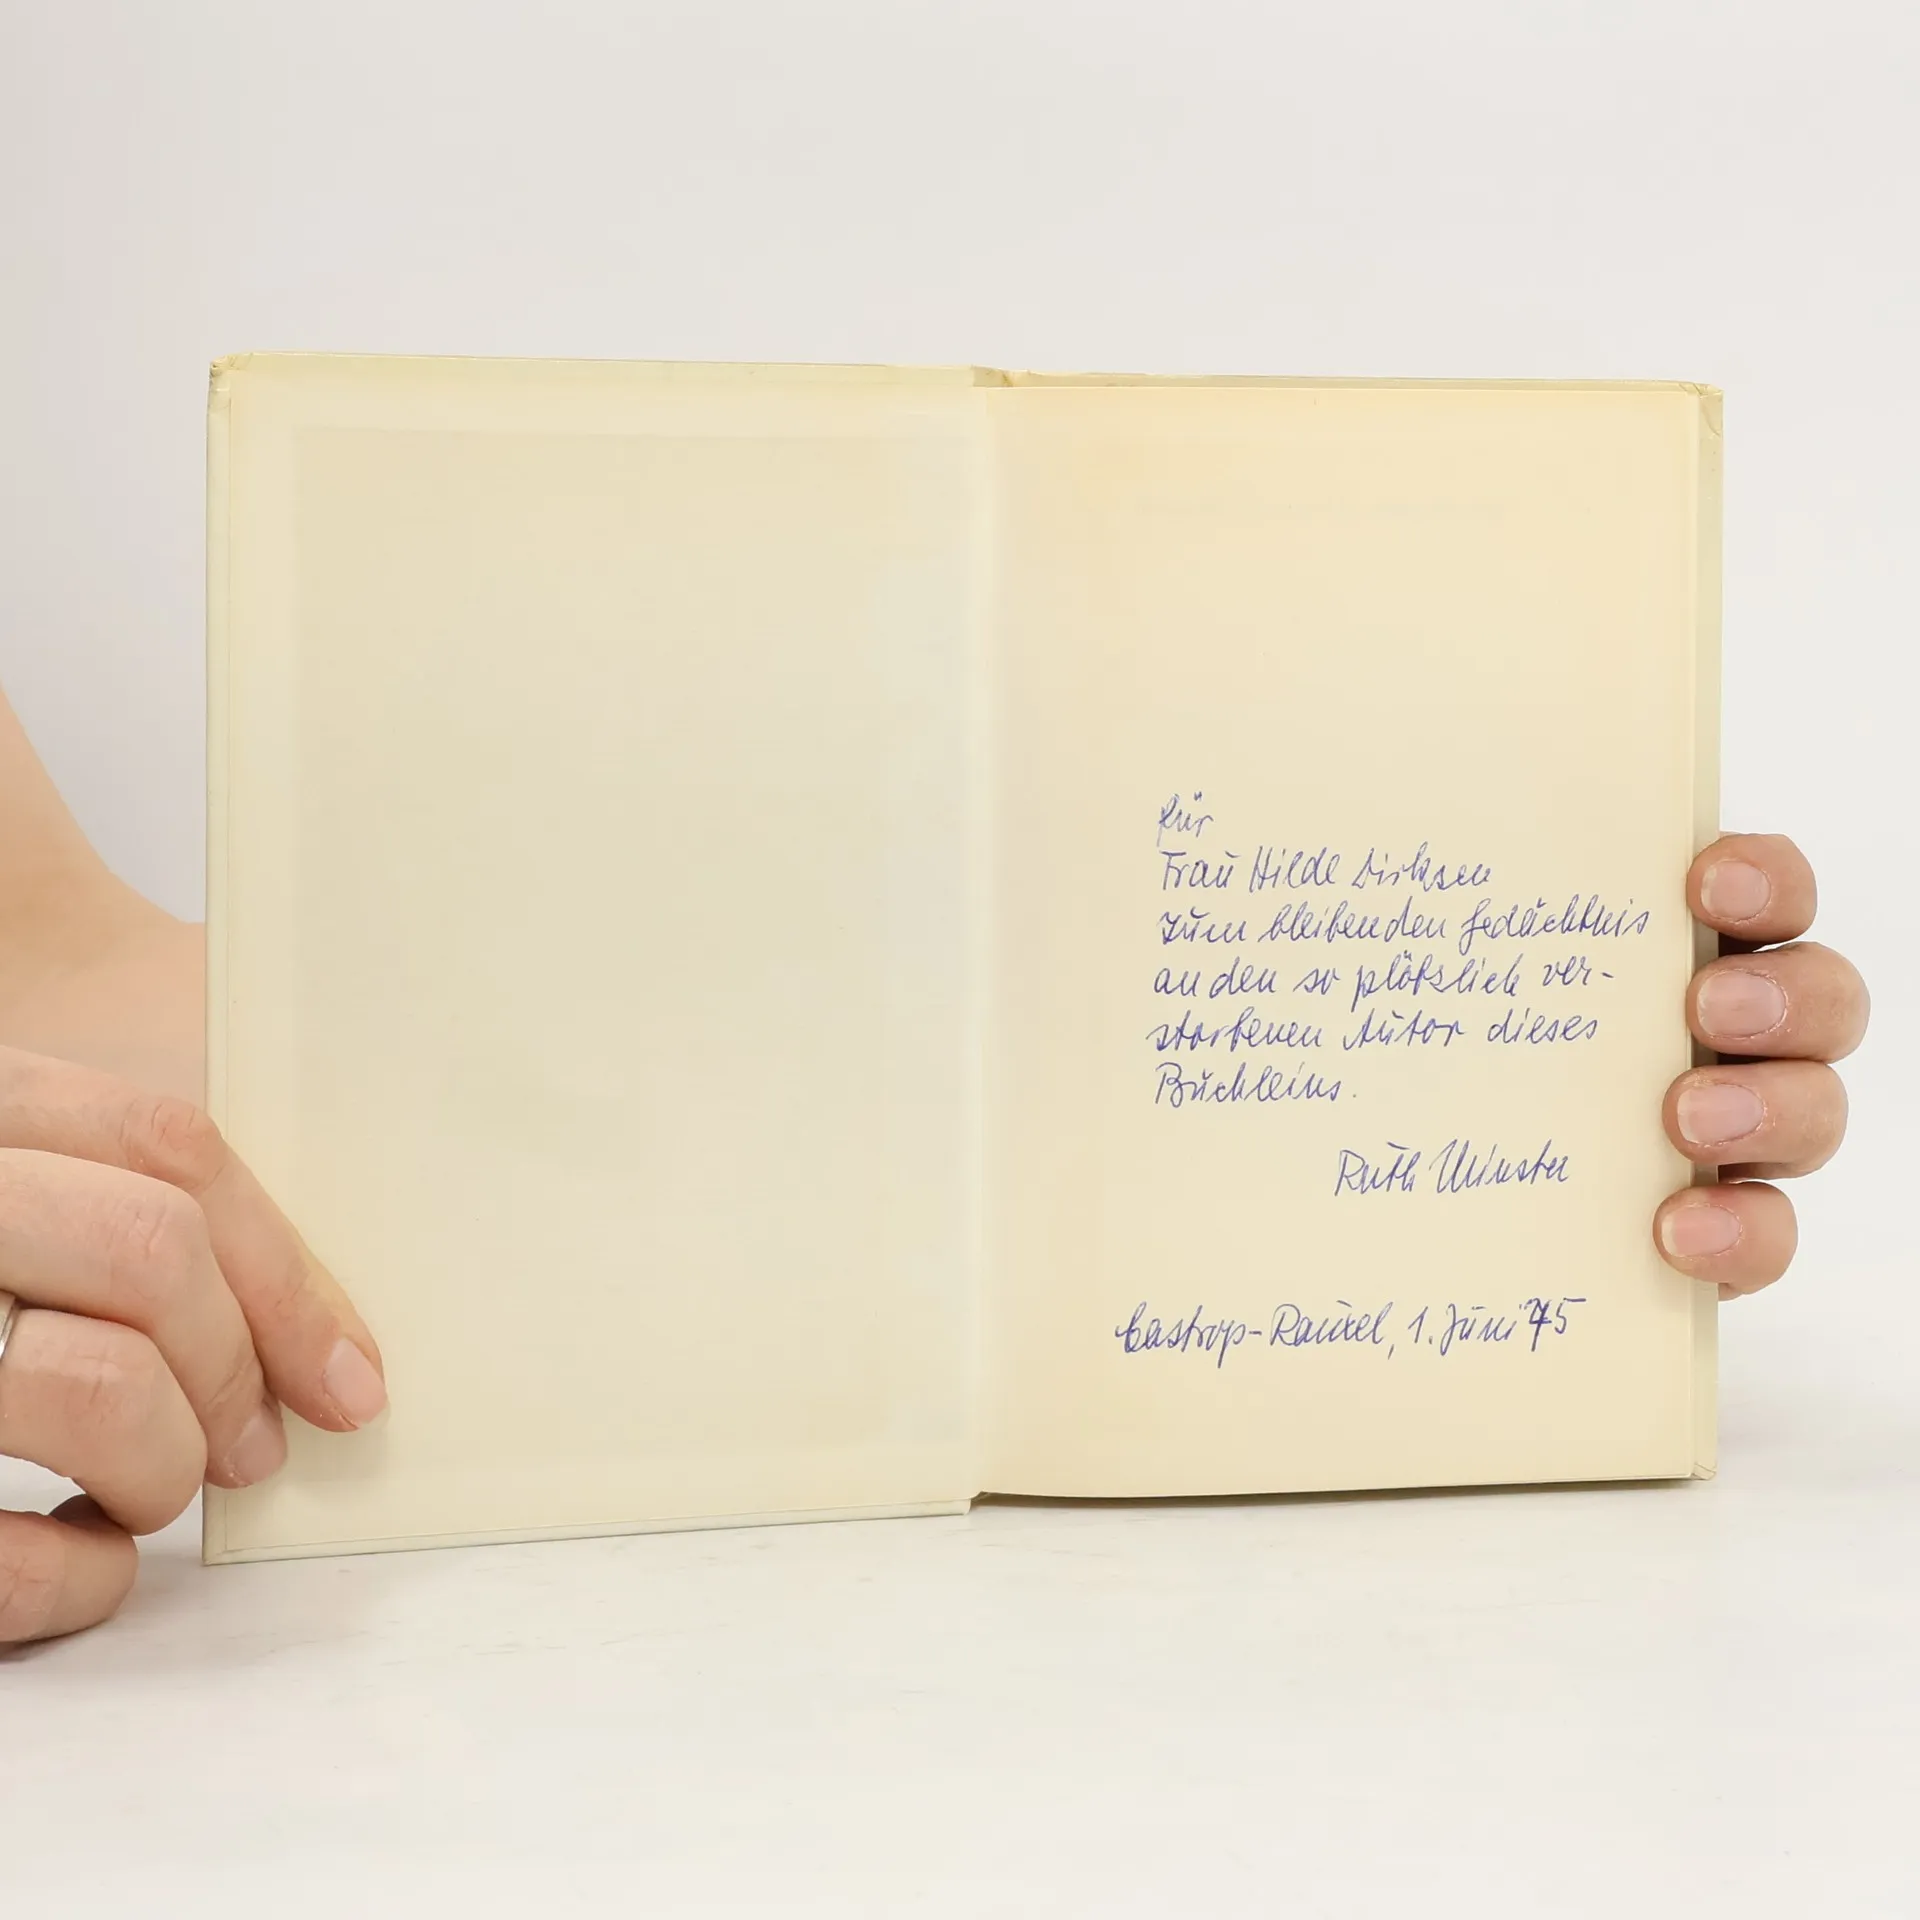 für
Frau Hilde Dirksen
zum bleibenden Gedächtnis
an den so plötzlich ver-
storbenen Autor dieses
Büchleins.
Ruth
Castrop-Rauxel, 1. Juni 75